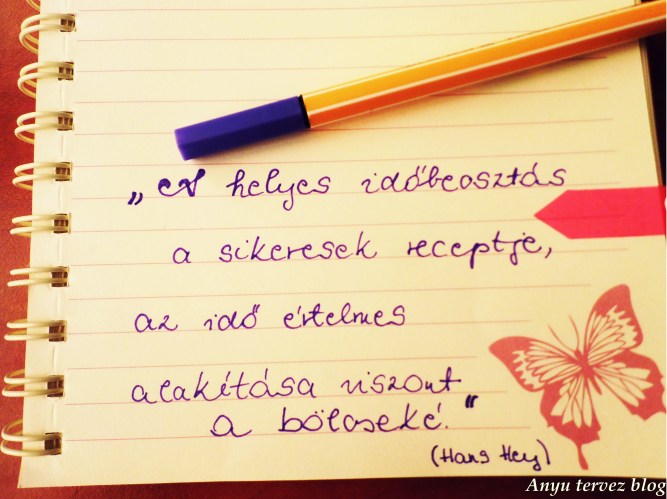 „A helyes időbeosztás
a sikeresek receptje,
az idő értelmes
alakítása viszont
a bölcseké.“
(Hans Hey)
Anyu tervez blog